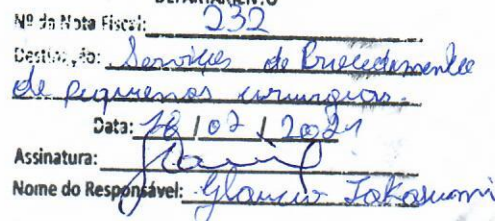 DEPARTAMENTO
Nº da Nota Fiscal: 232
Destinação: Serviços de Procedimentos
de pequenas cirurgias.
Data: 28 / 07 / 2021
Assinatura:
Nome do Responsável: Glaucio Takasumi